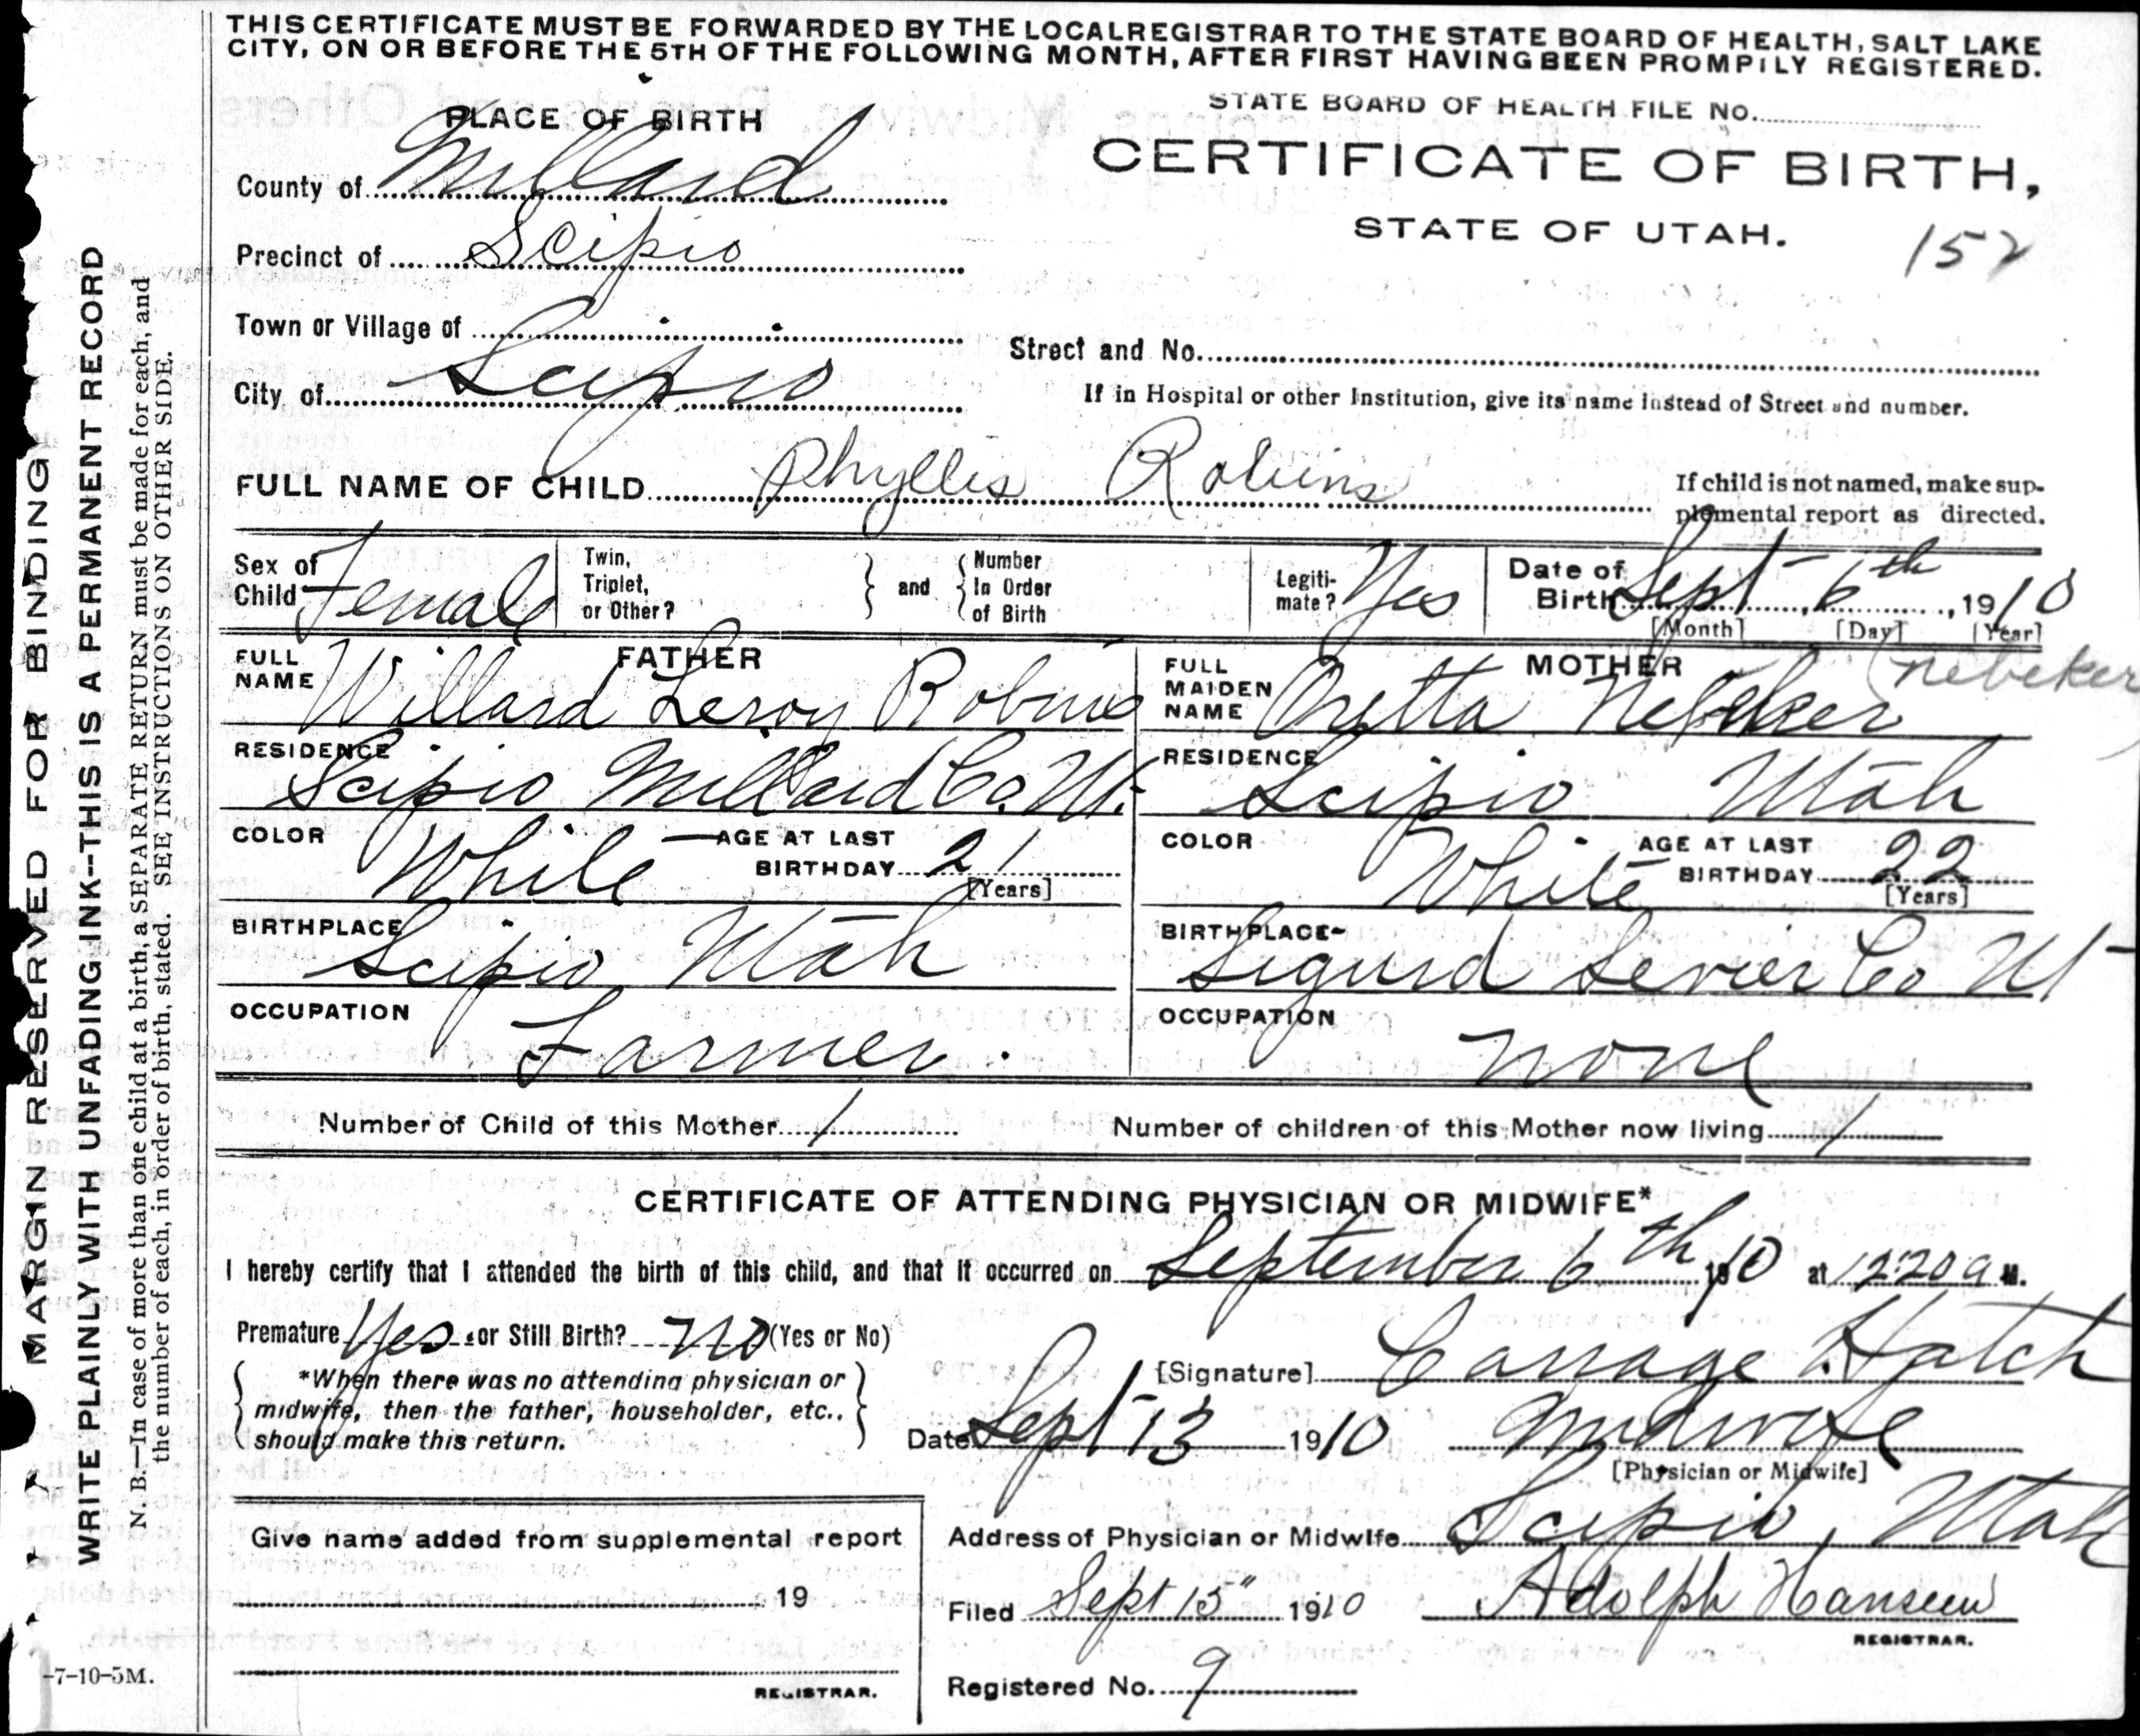 THIS CERTIFICATE MUST BE FORWARDED BY THE LOCALREGISTRAR TO THE STATE BOARD OF HEALTH, SALT LAKE
CITY, ON OR BEFORE THE 5TH OF THE FOLLOWING MONTH, AFTER FIRST HAVING BEEN PROMPILY REGISTERED.
STATE BOARD OF HEALTH FILE NO.
PLACE OF BIRTH
CERTIFICATE OF BIRTH,
County of Millard
STATE OF UTAH.
152
Precinct of Scipio
Town or Village of
Street and No.
City of Scipio
If in Hospital or other Institution, give its name instead of Street and number.
FULL NAME OF CHILD Phyllis Robins
If child is not named, make sup-
plemental report as directed.
Sex of Child Female
Twin, Triplet, or Other?
and
Number In Order of Birth
Legiti-mate? Yes
Date of Birth Sept 6th, 1910
[Month] [Day] [Year]
FATHER
FULL NAME Willard Leroy Robins
MOTHER
FULL MAIDEN NAME Oretta Nebeker (Nebeker)
RESIDENCE Scipio Millard Co. Ut.
RESIDENCE Scipio Utah
COLOR White AGE AT LAST BIRTHDAY 21 [Years]
COLOR White AGE AT LAST BIRTHDAY 22 [Years]
BIRTHPLACE Scipio Utah
BIRTHPLACE Sigurd Sevier Co Ut
OCCUPATION Farmer.
OCCUPATION None
Number of Child of this Mother 1
Number of children of this Mother now living 1
CERTIFICATE OF ATTENDING PHYSICIAN OR MIDWIFE*
I hereby certify that I attended the birth of this child, and that it occurred on September 6th 1910 at 12:20 a M.
Premature Yes or Still Birth? No (Yes or No)
[Signature] Carrage Hatch
*When there was no attending physician or
midwife, then the father, householder, etc.,
should make this return.
Date Sept 13 1910 Midwife
[Physician or Midwife]
Give name added from supplemental report
19
REGISTRAR.
Address of Physician or Midwife Scipio, Utah
Filed Sept 15" 1910 Adolph Hansen
REGISTRAR.
Registered No. 9
MARGIN RESERVED FOR BINDING
WRITE PLAINLY WITH UNFADING INK--THIS IS A PERMANENT RECORD
N. B.—In case of more than one child at a birth, a SEPARATE RETURN must be made for each, and
the number of each, in order of birth, stated. SEE INSTRUCTIONS ON OTHER SIDE.
-7-10-5M.